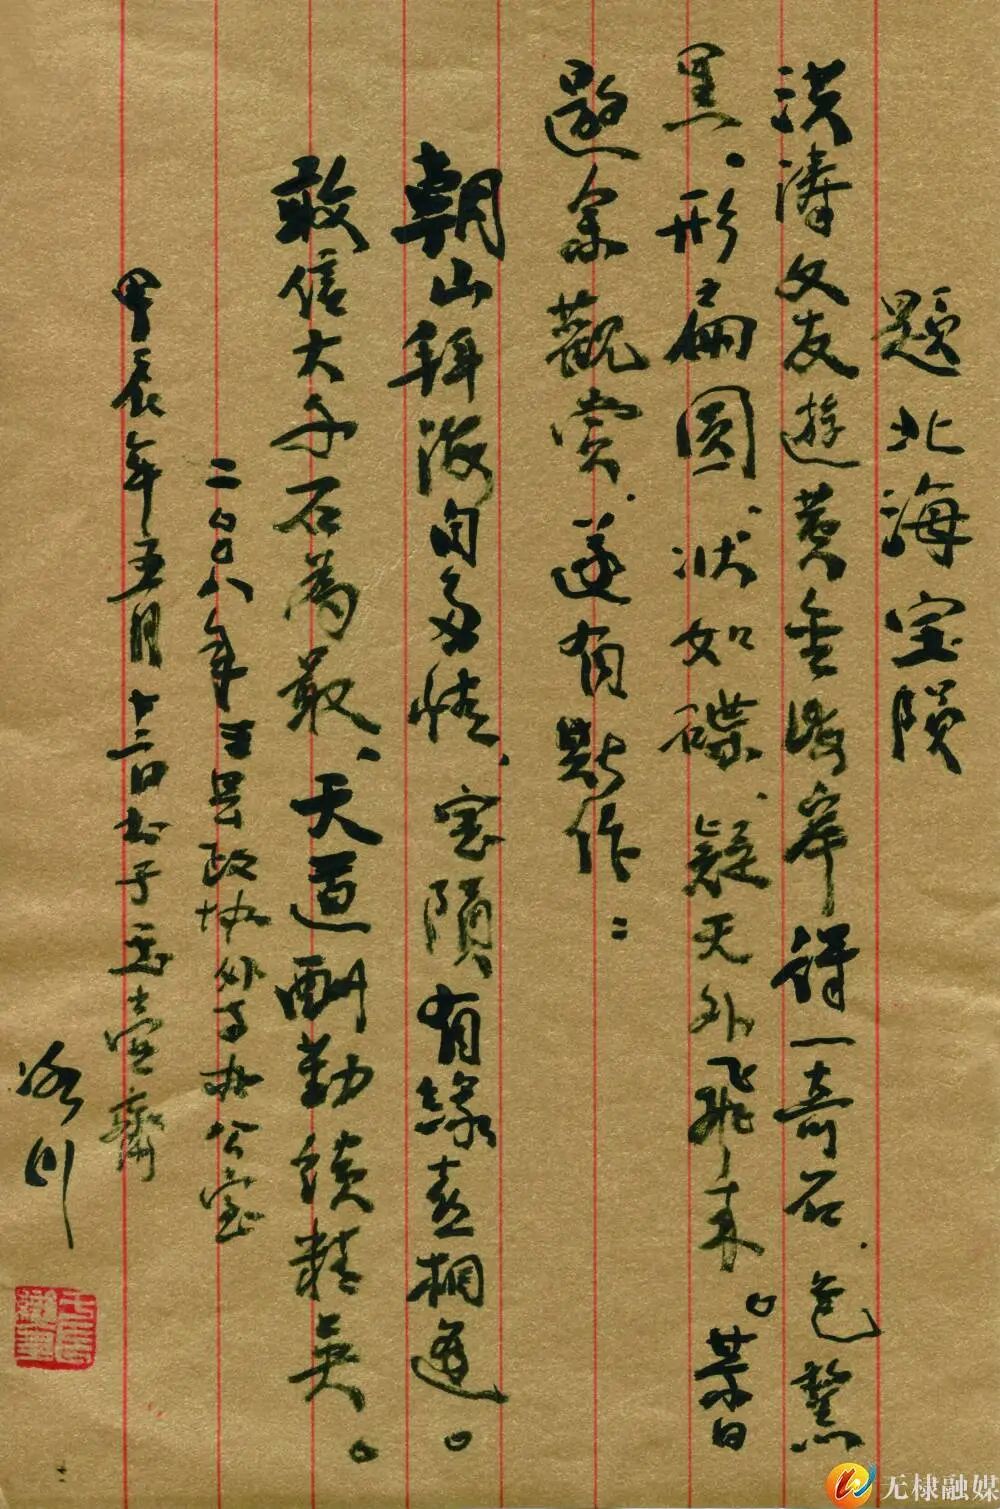 题北海宝陨
洪涛文友遊黄金海岸得一奇石、色黧
黑。形扁圆、状如碟、疑天外飞来。某日
邀余觀赏、遂有斯作：
朝山拜海自多情、宝陨有緣喜相逢。
敢信大千石為最、天道酬勤续精英。
二〇〇八年于县政协外事办公室
甲辰年五月十二日书于玉壶齋
无棣融媒